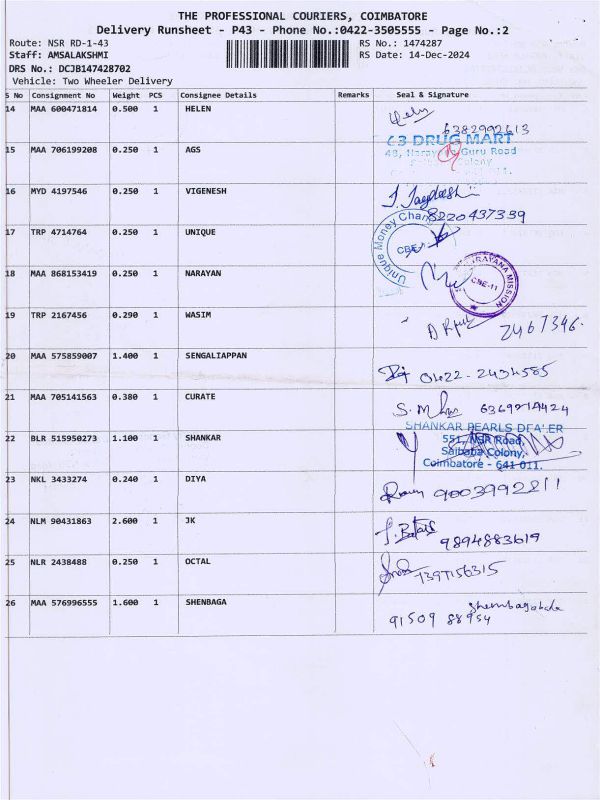 THE PROFESSIONAL COURIERS, COIMBATORE
Delivery Runsheet - P43 - Phone No.:0422-3505555 - Page No.:2
Route: NSR RD-1-43 RS No.: 1474287
Staff: AMSALAKSHMI RS Date: 14-Dec-2024
DRS No.: DCJB147428702
Vehicle: Two Wheeler Delivery
S No Consignment No Weight PCS Consignee Details Remarks Seal & Signature
14 MAA 600471814 0.500 1 HELEN
6382992613
15 MAA 706199208 0.250 1 AGS
63 DRUG MART
48, Guru Road
Colony
16 MYD 4197546 0.250 1 VIGENESH
8220437339
17 TRP 4714764 0.250 1 UNIQUE
Unique Money
CBE
18 MAA 868153419 0.250 1 NARAYAN
MISSION
CBE-11
19 TRP 2167456 0.290 1 WASIM
2467346.
20 MAA 575859007 1.400 1 SENGALIAPPAN
0422-2434585
21 MAA 705141563 0.380 1 CURATE
22 BLR 515950273 1.100 1 SHANKAR
SHANKAR PEARLS DEALER
551, NSR Road,
Saibaba Colony,
Coimbatore - 641 011.
23 NKL 3433274 0.240 1 DIYA
9003992811
24 NLM 90431863 2.600 1 JK
9894883619
25 NLR 2438488 0.250 1 OCTAL
7397156315
26 MAA 576996555 1.600 1 SHENBAGA
91509 88954